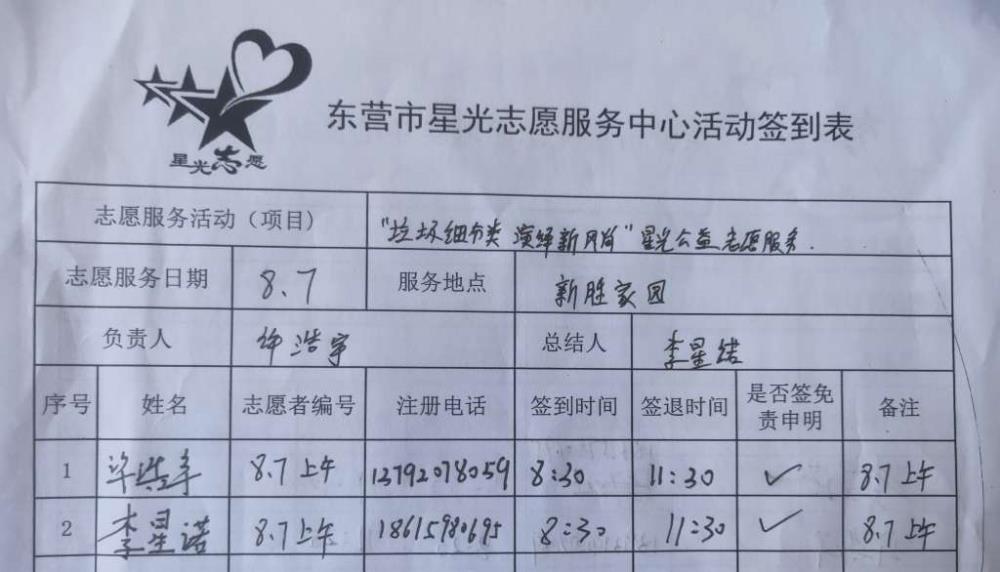 星光志愿
东营市星光志愿服务中心活动签到表
志愿服务活动（项目） "垃圾细分类 演绎新风尚"星光公益志愿服务.
志愿服务日期 8.7 服务地点 新胜家园
负责人 浩宇 总结人 李星诺
序号 姓名 志愿者编号 注册电话 签到时间 签退时间 是否签免责申明 备注
1 8.7上午 13792078059 8:30 11:30 ✓ 8.7上午
2 李星诺 8.7上午 18615980695 8:30 11:30 ✓ 8.7上午